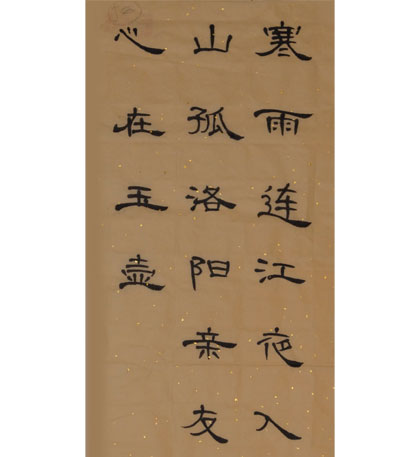 寒雨连江夜入
山孤洛阳亲友
心在玉壶